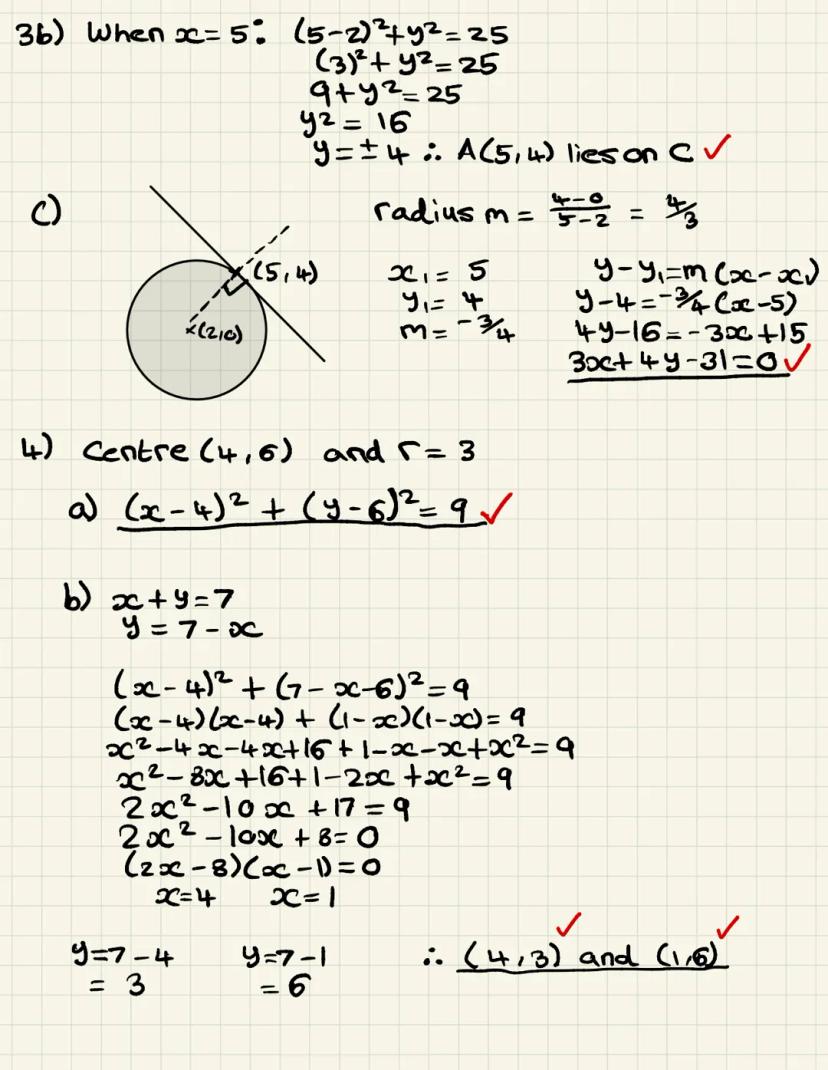 3b) When x = 5: (5-2)²+y² = 25
(3)² + y² = 25
9+y² = 25
y² = 16
y = ± 4 ∴ A(5,4) lies on C ✓
c)
radius m = 4-0/5-2 = 4/3
(5,4)
×(2,0)
x₁ = 5
y₁ = 4
m = -3/4
y-y₁=m(x-x₁)
y-4 = -3/4(x-5)
4y-16 = -3x+15
3x+4y-31=0 ✓
4) Centre (4,6) and r = 3
a) (x-4)² + (y-6)² = 9 ✓
b) x+y=7
y = 7-x
(x-4)² + (7-x-6)² = 9
(x-4)(x-4) + (1-x)(1-x) = 9
x²-4x-4x+16+1-x-x+x² = 9
x²-8x+16+1-2x+x² = 9
2x²-10x+17 = 9
2x²-10x+8 = 0
(2x-8)(x-1) = 0
x=4 x=1
y=7-4
= 3
y=7-1
= 6
∴ (4,3) ✓ and (1,6) ✓